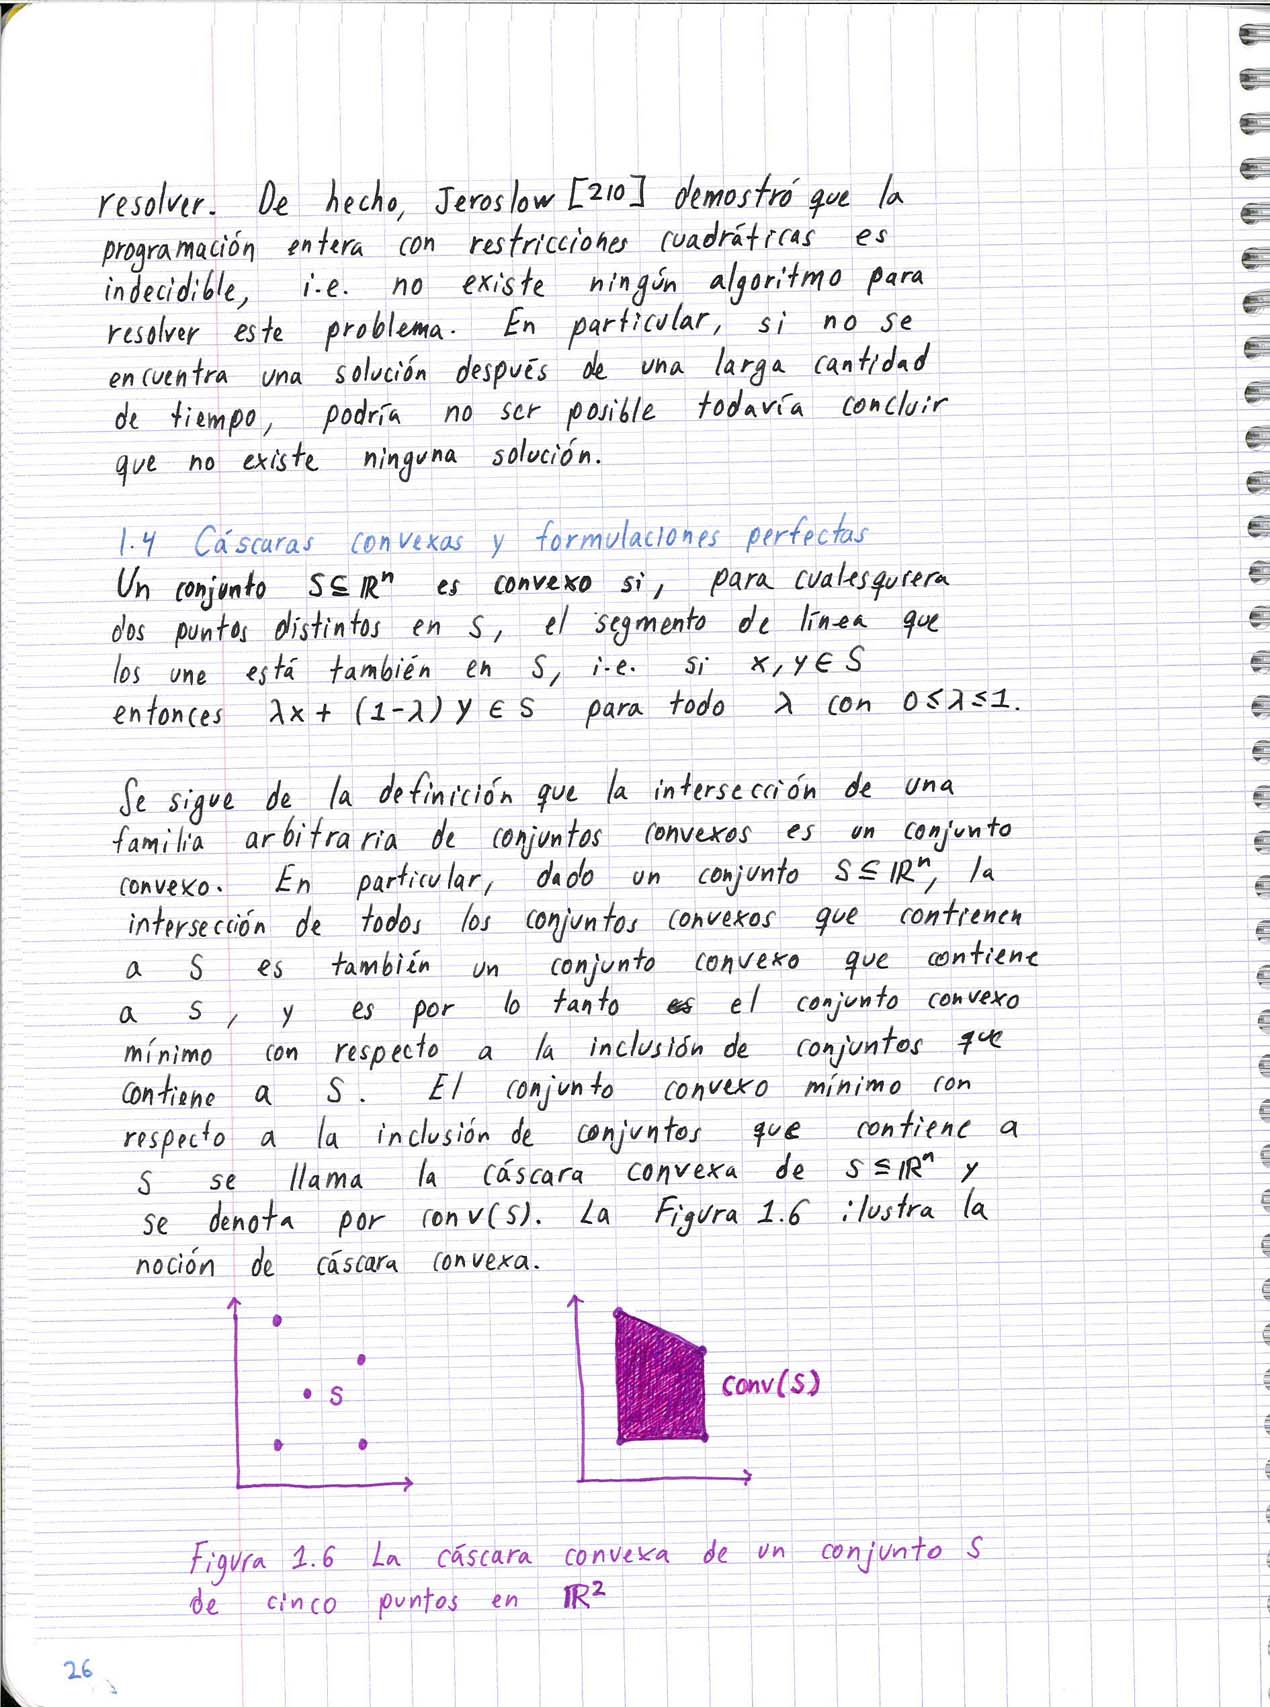 resolver. De hecho, Jeroslow [210] demostró que la
programación entera con restricciones cuadráticas es
indecidible, i.e. no existe ningún algoritmo para
resolver este problema. En particular, si no se
encuentra una solución después de una larga cantidad
de tiempo, podría no ser posible todavía concluir
que no existe ninguna solución.
1.4 Cáscaras convexas y formulaciones perfectas
Un conjunto S⊆ℝⁿ es convexo si, para cualesquiera
dos puntos distintos en S, el segmento de línea que
los une está también en S, i.e. si x, y ∈ S
entonces λx + (1-λ) y ∈ S para todo λ con 0≤λ≤1.
Se sigue de la definición que la intersección de una
familia arbitraria de conjuntos convexos es un conjunto
convexo. En particular, dado un conjunto S⊆ℝⁿ, la
intersección de todos los conjuntos convexos que contienen
a S es también un conjunto convexo que contiene
a S, y es por lo tanto el conjunto convexo
mínimo con respecto a la inclusión de conjuntos que
contiene a S. El conjunto convexo mínimo con
respecto a la inclusión de conjuntos que contiene a
S se llama la cáscara convexa de S⊆ℝⁿ y
se denota por conv(S). La Figura 1.6 ilustra la
noción de cáscara convexa.
S
conv(S)
Figura 1.6 La cáscara convexa de un conjunto S
de cinco puntos en ℝ²
26